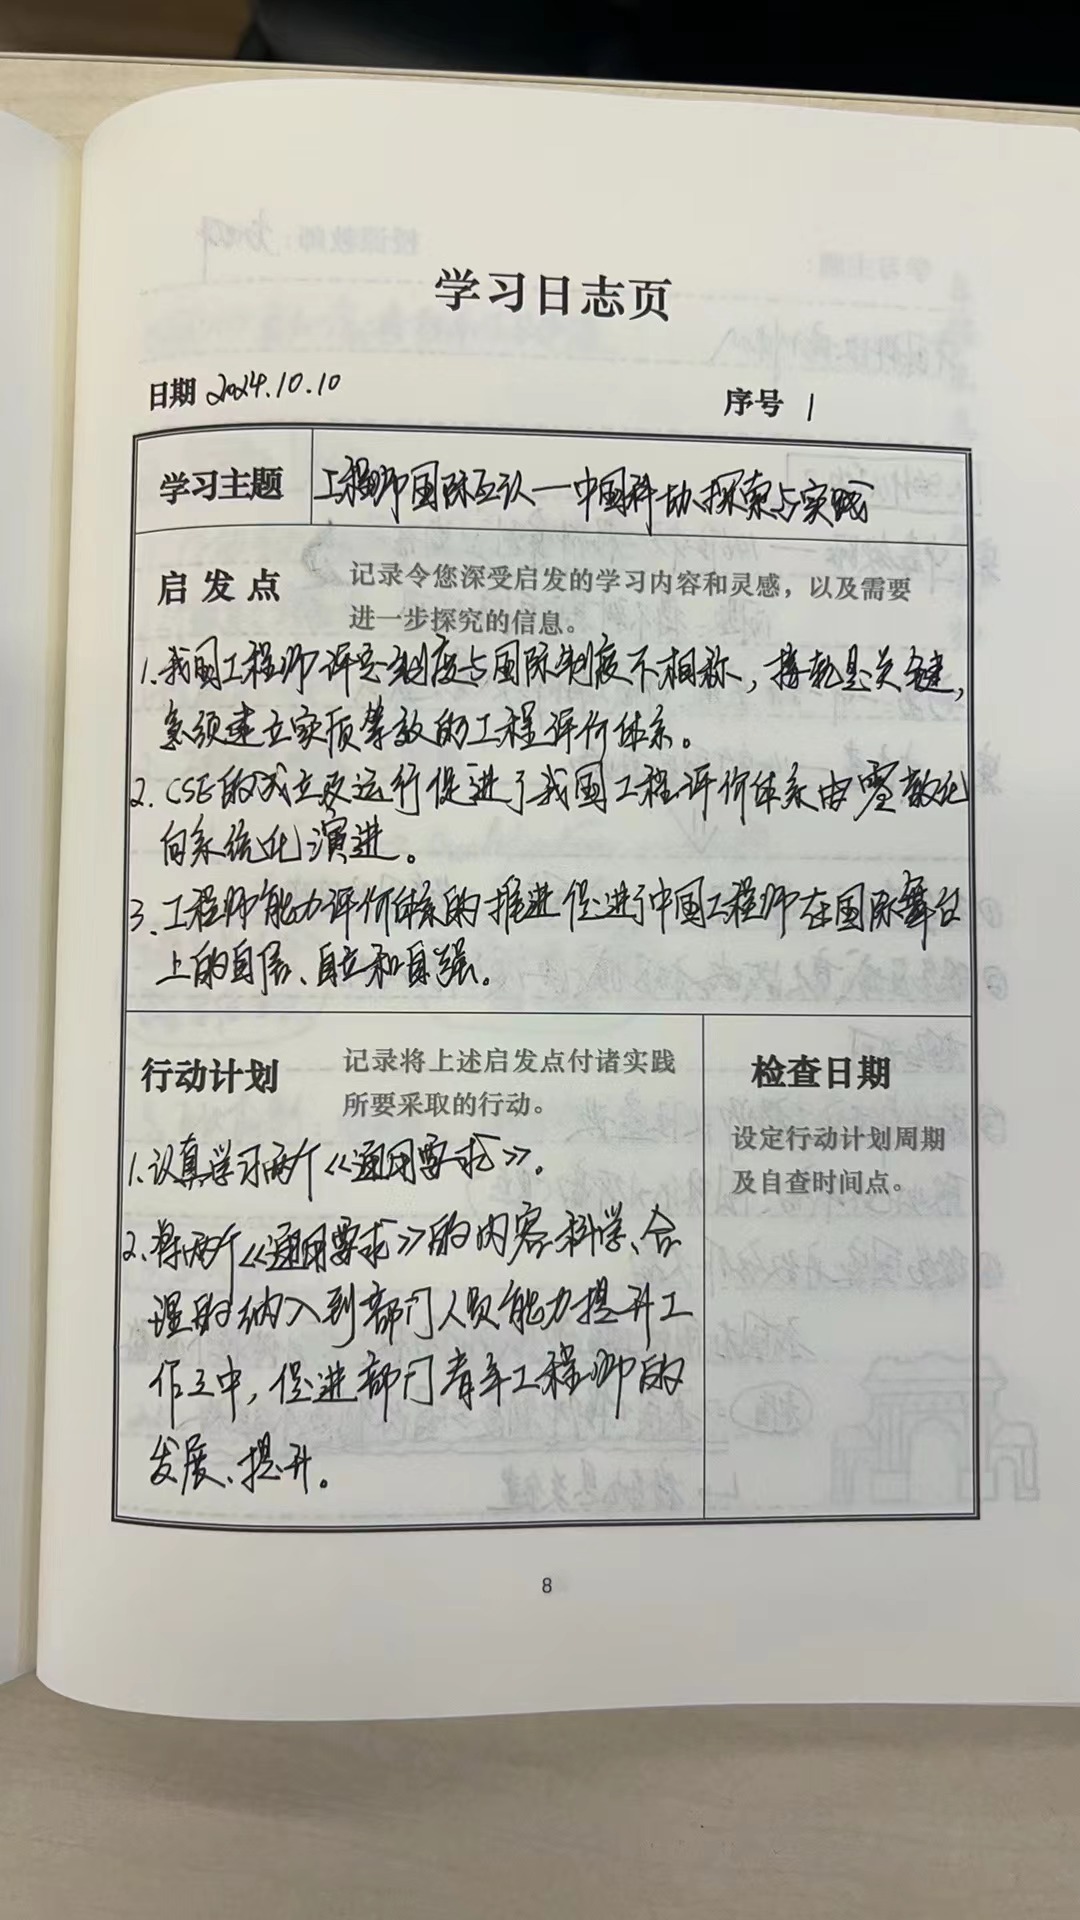 学习日志页
日期 2024.10.10
序号 1
学习主题
工程师国际互认—中国科协探索与实践
启发点
记录令您深受启发的学习内容和灵感，以及需要
进一步探究的信息。
1.我国工程师评定制度与国际制度不相称，接轨是关键，
急须建立实质等效的工程评价体系。
2. CSE的成立及运行促进了我国工程评价体系由零散化
向系统化演进。
3.工程师能力评价体系的推进促进了中国工程师在国际舞台
上的自信、自立和自强。
行动计划
记录将上述启发点付诸实践
所要采取的行动。
1.认真学习两个《通用要求》。
2.将两个《通用要求》的内容科学、合
理的纳入到部门人员能力提升工
作之中，促进部门青年工程师的
发展、提升。
检查日期
设定行动计划周期
及自查时间点。
8